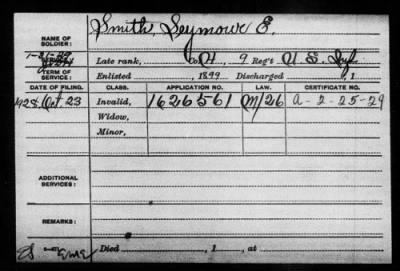 NAME OF SOLDIER: Smith, Seymour E.
SERVICE: Late rank, Co H, 9 Reg't U.S. Inf
TERM OF SERVICE: Enlisted , 1899 Discharged , 1
DATE OF FILING. CLASS. APPLICATION NO. LAW. CERTIFICATE NO.
1928 Oct. 23 Invalid, 1626561 M/26 A-2-25-29
Widow,
Minor,
ADDITIONAL SERVICES:
REMARKS:
Died , 1 , at